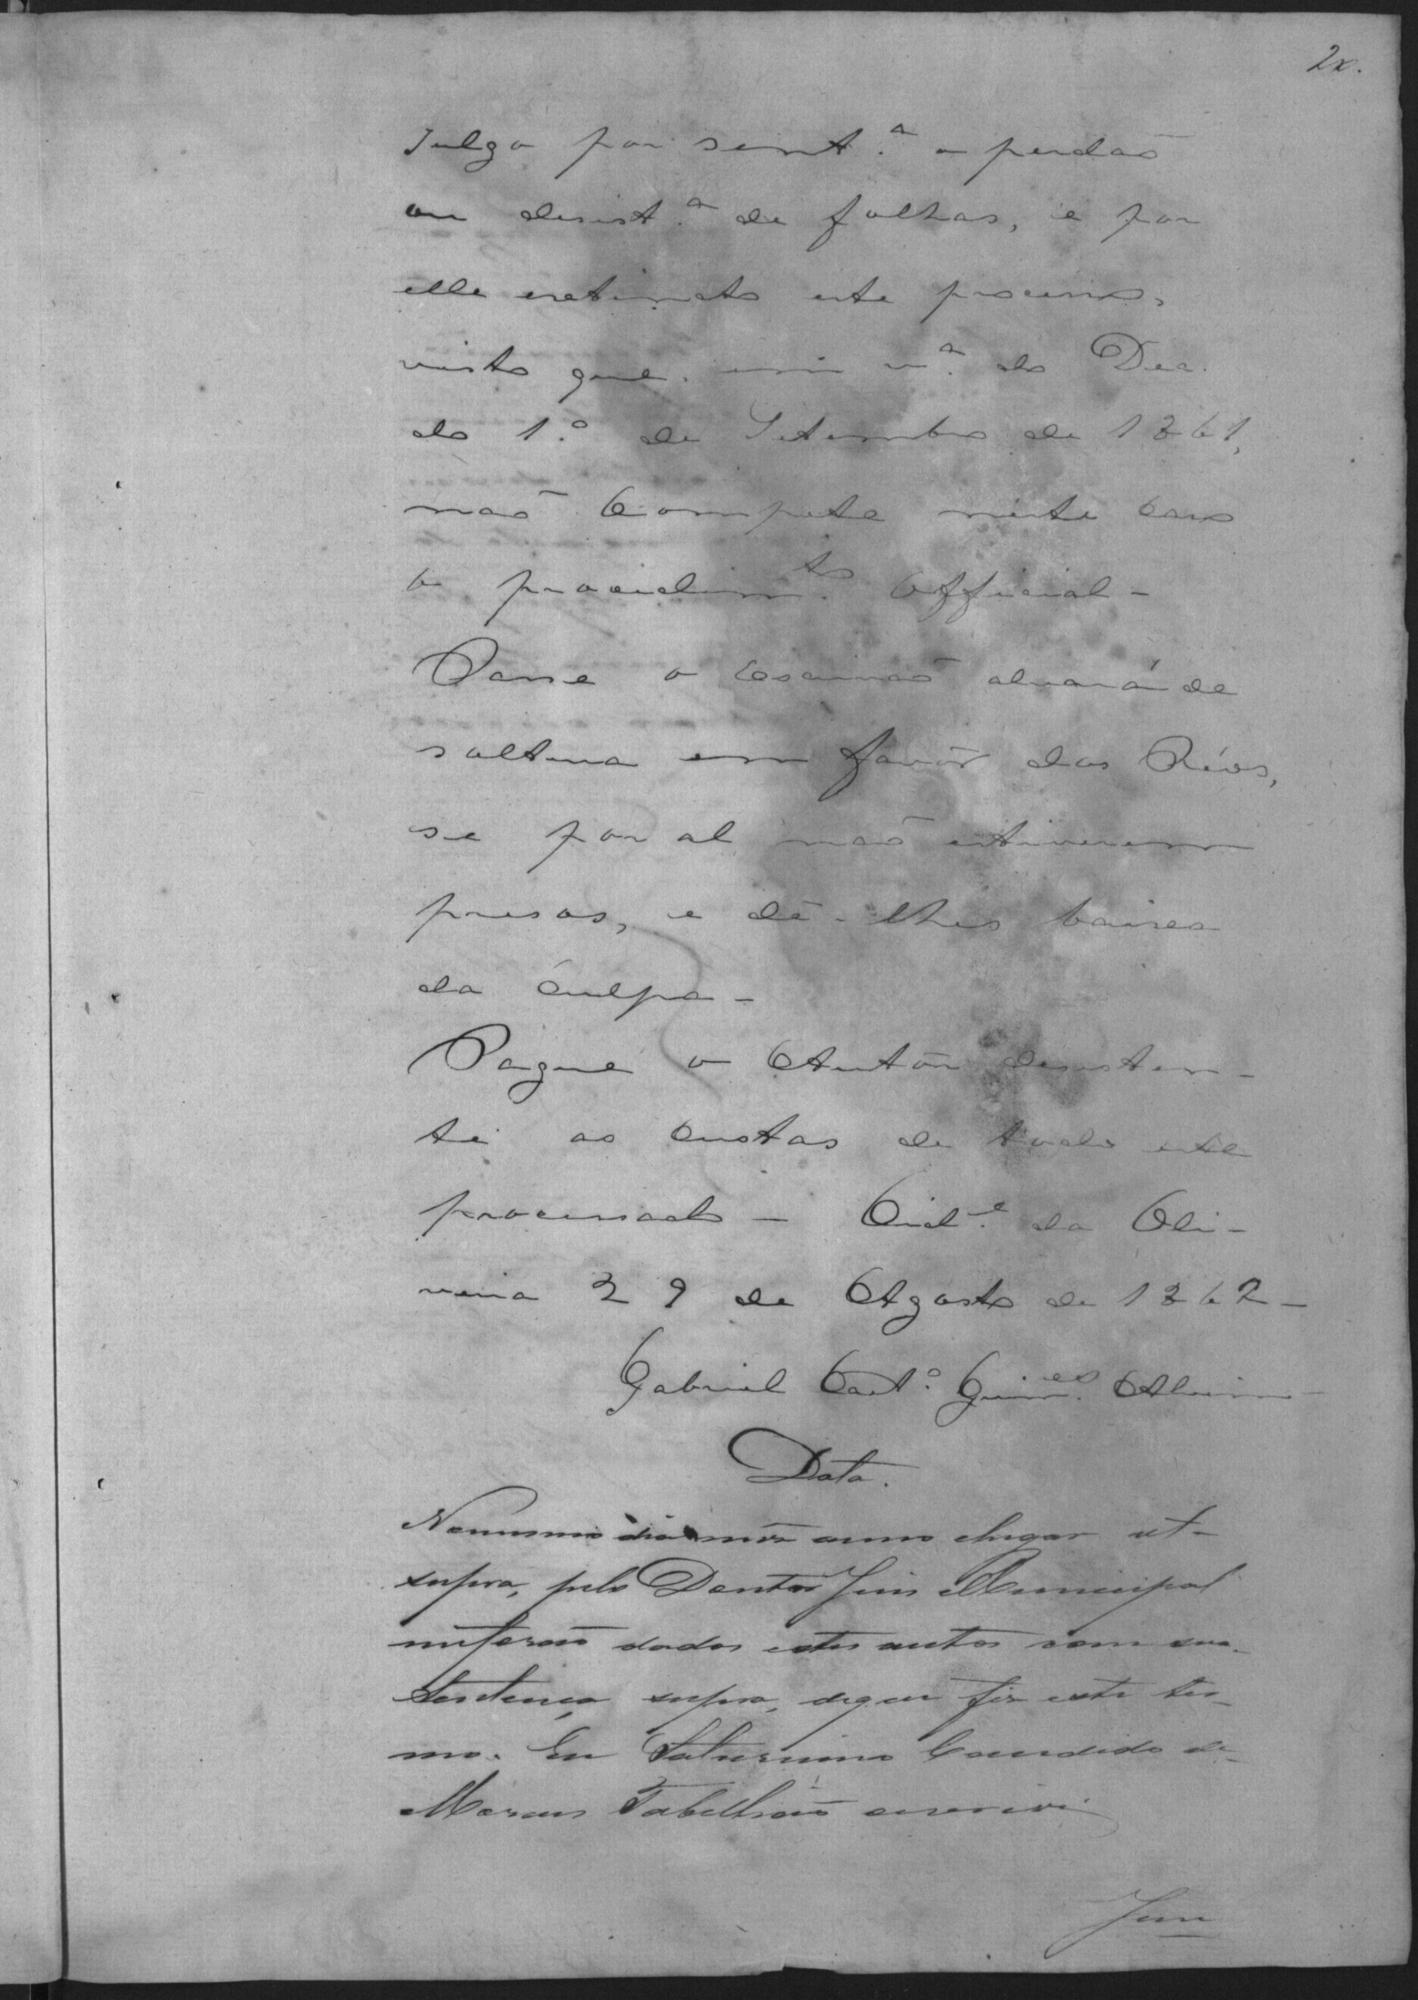 Julgo por sent.ª o perdaõ
ou desist.ª de folhas, e por
elle extincto este processo,
visto que, em v.ª do Dec.
do 1.º de Setembro de 1861,
naõ Compete neste Caso
o procidim.to Official -
Passe o Escrivaõ alvará de
soltura em favôr dos Réos,
se por al naõ estiverem
presos, e dê-lhes baixa
da Culpa -
Pague o Autôr desisten-
te as Custas de todo este
processado - Cid.e da Oli-
veira 29 de Agosto de 1862 -
Gabriel Caet.º Guim.es Alvim -
Data.
No mesmo dia mês anno e lugar ut-
supra, pelo Doutor Juis Municipal
me foraõ dados estes autos com sua
sentença supra, de que fis este ter-
mo. Eu Saturnino Candido de
Moraes Tabelliaõ escrevi